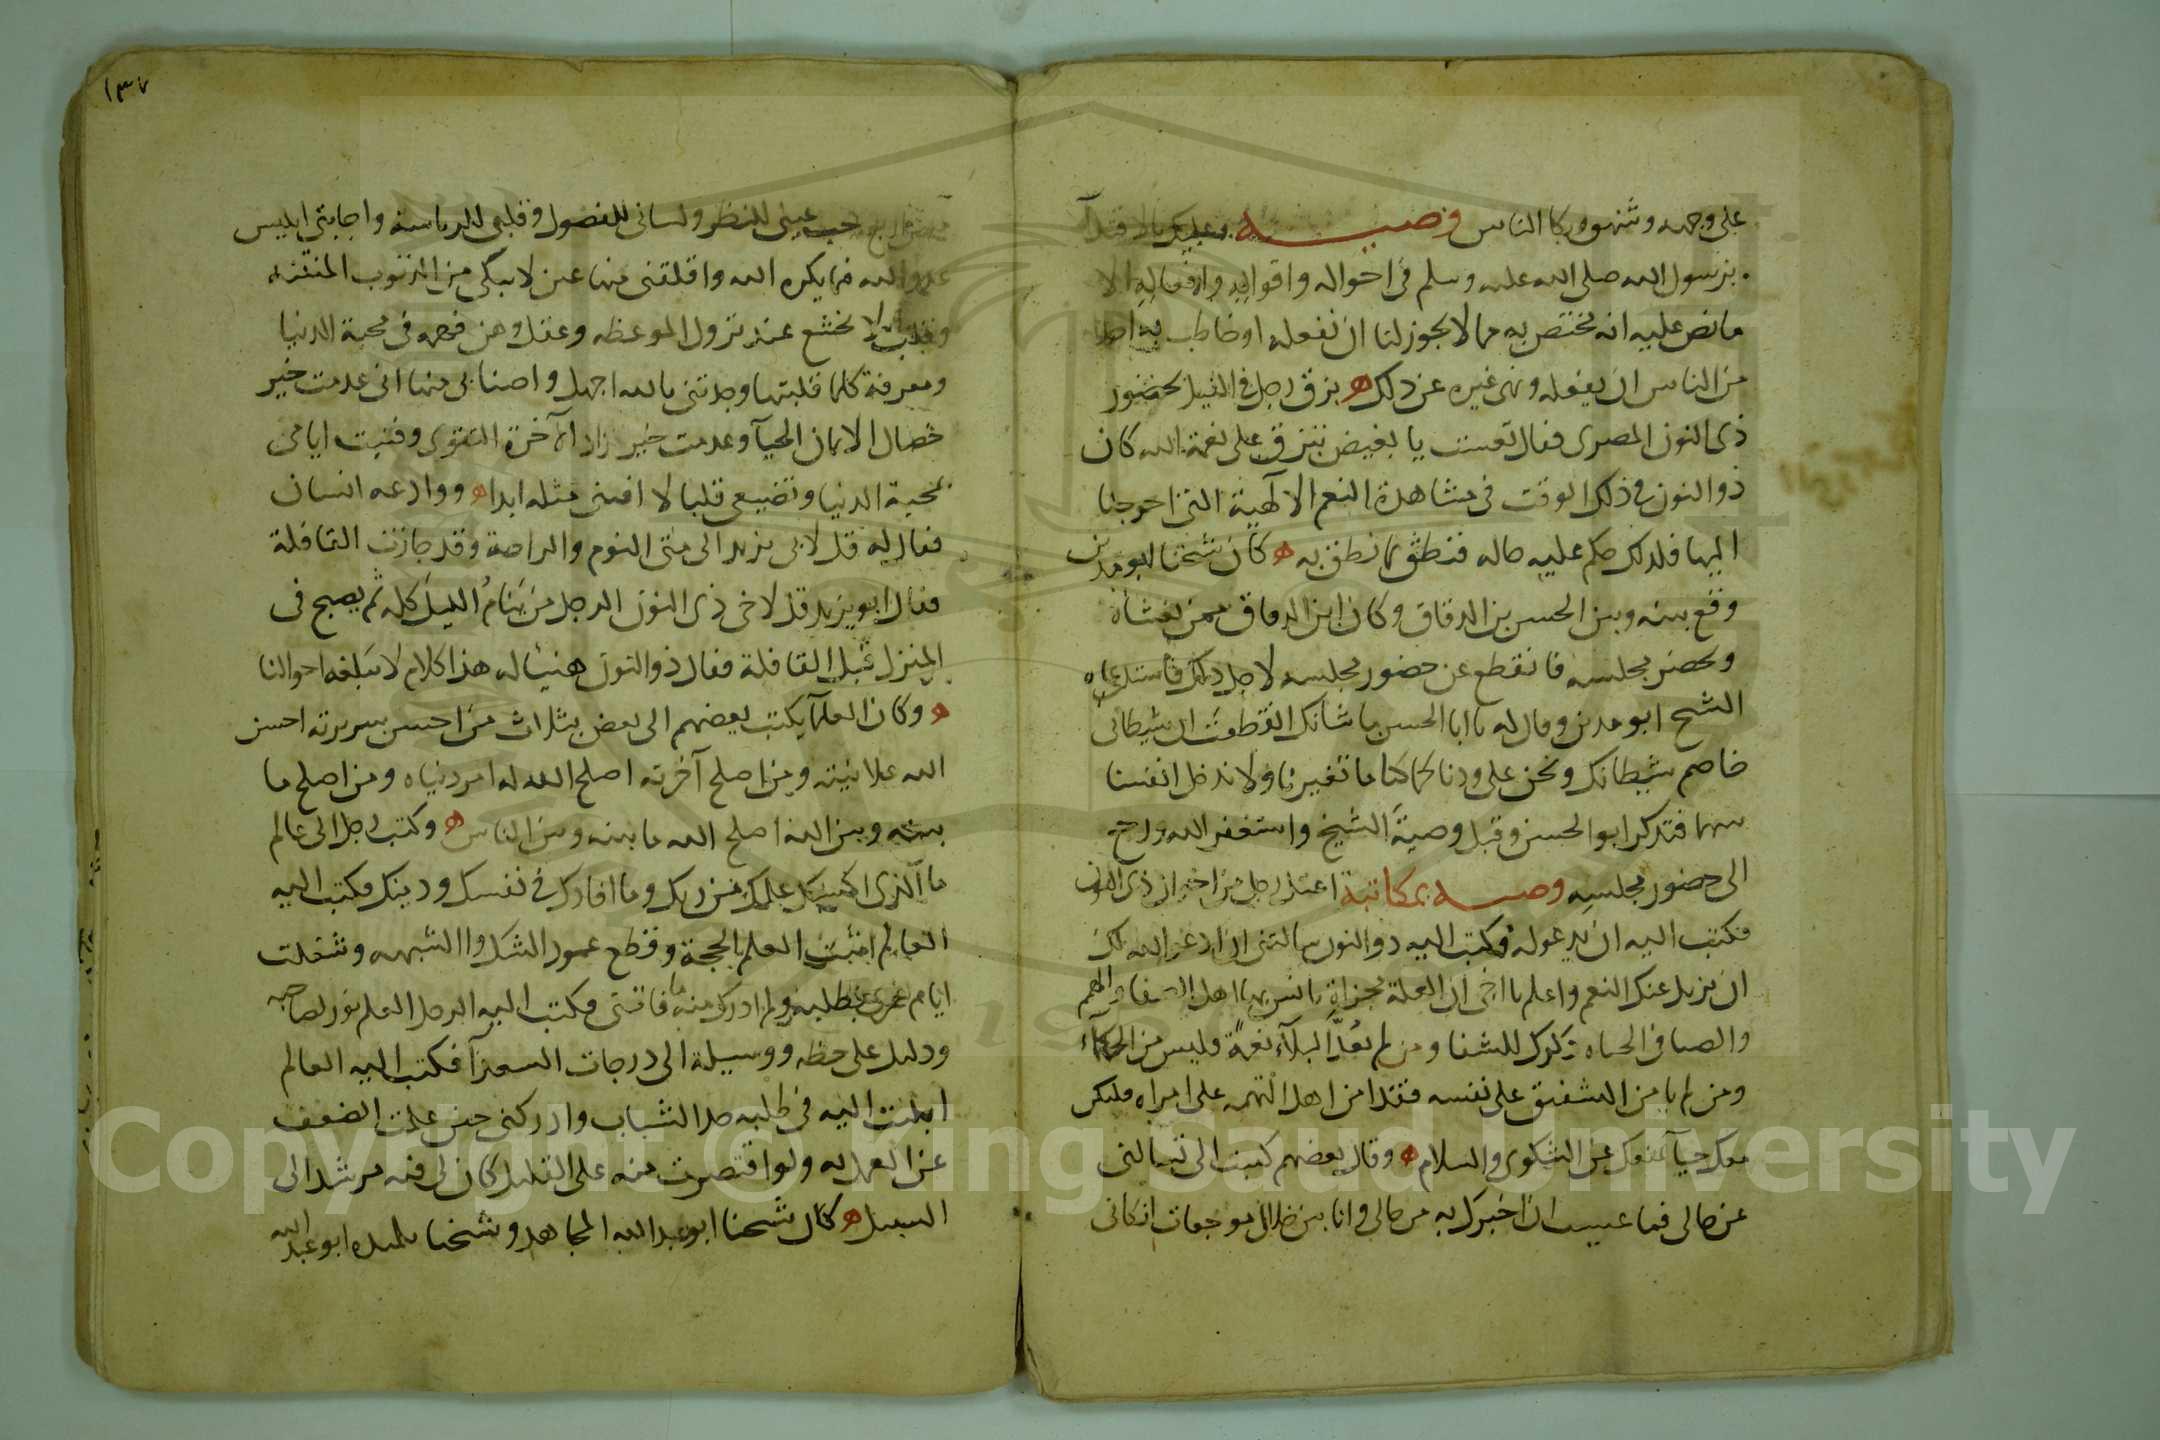 على وجهه وشهوة بكا الناس وصيـــة وعليك بالاقتدآ
برسول الله صلى الله عليه وسلم في احواله واقواله وافعاله الا
ما نص عليه انه مختص به مما لا يجوز لنا ان نفعله او خاطب به احدا
من الناس ان يفعله ونهى غيره عن ذلك ه بزق رجل في النيل بحضور
ذى النون المصرى فقال تعست يا بغيض تبزق على نعمة الله كان
ذو النون في ذلك الوقت في مشاهدة النعم الآلهية التى احوجنا
اليها فلذلك حكم عليه حاله فنطق بما نطق به ه كان شيخنا ابو مدين
وقع بينه وبين الحسن بن الدقاق وكان ابن الدقاق ممن يغشاه
ويحضر مجلسه فانقطع عن حضور مجلسه لاجل ذلك فاستدعاه
الشيخ ابو مدين وقال له يا ابا الحسن ما شأنك انقطعت ان شيطانى
خاصم شيطانك ونحن على ودنا كما كنا ما تغيرنا ولا ندخل انفسنا
بينهما فتذكر ابو الحسن وقبل وصية الشيخ واستغفر الله ورجع
الى حضور مجلسه وصيـــة بمكاتبة اعتل رجل من اخوان ذى النون
فكتب اليه ان يدعو له فكتب اليه ذو النون سالتنى ان ادعو الله لك
ان يزيل عنك النعم واعلم يا اخى ان العلة مجزاة يانس بها اهل الصفا والهمم
والضيا في الحياه ذكرك للشفا ومن لم يعد البلآء نعمة فليس من الحكمآء
ومن لم يامن الشفيق على نفسه فقد امن اهل التهمه على امره فليكن
معك حيآء يمنعك عن الشكوى والسلام ه وقال بعضهم كتبت الى تسالنى
عن حالى فما عسيت ان اخبرك به من حالى وانا بين خلال موجعات ابكانى
١٣٧
منهن اربع حب عينى للنظر ولسانى للفضول وقلبى للرياسة واجابتى ابليس
عدو الله فيما يكره الله واقلقنى منها عين لا تبكى من الذنوب المنتنه
وقلب لا يخشع عند نزول الموعظه وعقل وهن فهمه في محبة الدنيا
ومعرفة كلما قلبتها وجدتنى بالله اجهل واضنانى منها انى عدمت خير
خصال الايمان الحيآء وعدمت خير زاد الآخرة التقوى وفنيت ايامى
بمحبة الدنيا وتضييعى قلبا لا اقتنى مثله ابدا ه ووادعه انسان
فقال له قل لابى يزيد الى متى النوم والراحة وقد جازت القافلة
فقال ابو يزيد قل لاخى ذى النون الرجل من ينام الليل كله ثم يصبح في
المنزل قبل القافلة فقال ذو النون هنيئا له هذا كلام لا تبلغه احوالنا
ه وكان العلمآء يكتب بعضهم الى بعض بثلاث من احسن سريرته احسن
الله علانيته ومن اصلح آخرته اصلح الله له امر دنياه ومن اصلح ما
بينه وبين الله اصلح الله ما بينه وبين الناس ه وكتب رجل الى عالم
ما الذى اكسبك علمك من ربك وما افادك في نفسك ودينك فكتب اليه
العالم اثبت العلم الحجة وقطع عمود الشك والشبهه وشغلت
ايام عمرى بطلبه ولم ادرك منه ما فاتنى فكتب اليه الرجل العلم نور لصاحبه
ودليل على حظه ووسيلة الى درجات السعدآء فكتب اليه العالم
ابليت اليه في طلبه جد الشباب وادركنى حين علمت الضعف
عن العمل به ولو اقتصرت منه على القليل كان لى فيه مرشد الى
السبيل ه كان شيخنا ابو عبد الله المجاهد وشيخنا تلميذه ابو عبد الله
Copyright © King Saud University